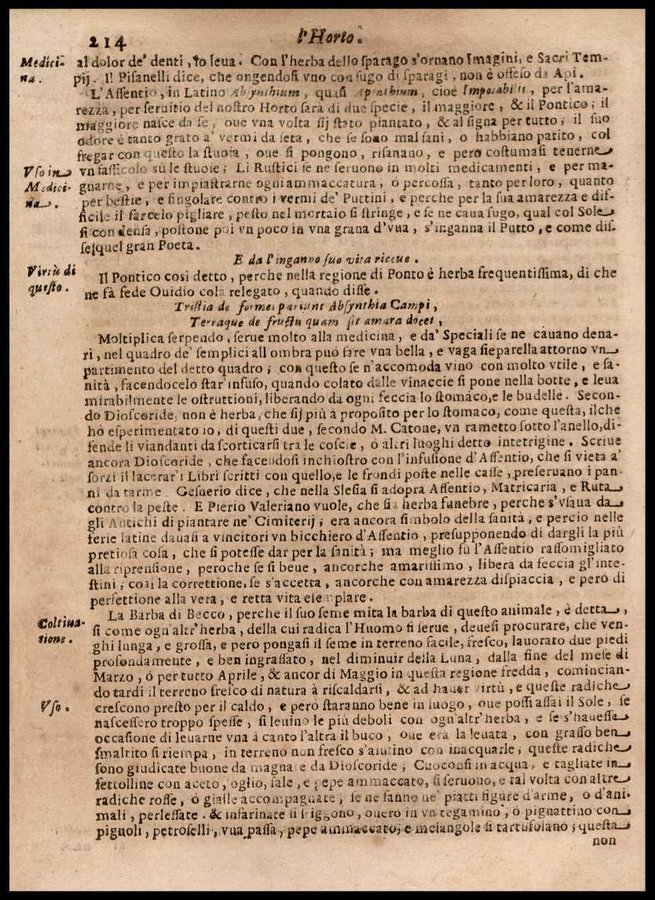 214
l'Horto.
Medici-
na.
al dolor de' denti, lo leua. Con l'herba dello sparago s'ornano Imagini, e Sacri Tem-
pij. Il Pisanelli dice, che ongendosi vno con sugo di sparagi, non è offeso da Api.
L'Assentio, in Latino Absynthium, quasi Apinthium, cioè Impotabilis, per l'ama-
rezza, per seruitio del nostro Horto sarà di due specie, il maggiore, & il Pontico; il
maggiore nasce da se, oue vna volta sij stato piantato, & al signa per tutto; il suo
odore è tanto grato a' vermi da seta, che se sono mal sani, o habbiano patito, col
fregar con questo la stuoia, oue si pongono, risanano, e però costumasi tenerne
Vso in
Medici-
na.
vn fassicolo sù le stuoie; Li Rustici se ne seruono in molti medicamenti, e per ma-
gnarne, e per impiastrarne ogni ammaccatura, ò percossa, tanto per loro, quanto
per bestie, e singolare contro i vermi de' Puttini, e perche per la sua amarezza e dif-
ficile il farcelo pigliare, pesto nel mortaio si stringe, e se ne caua sugo, qual col Sole
si condensa, postone poi vn poco in vna grana d'vua, s'inganna il Putto, e come dis-
se quel gran Poeta.
E da l'inganno suo vita riceue.
Virtù di
questo.
Il Pontico così detto, perche nella regione di Ponto è herba frequentissima, di che
ne fà fede Ouidio colà relegato, quando disse.
Tristia de formes pariunt Absynthia Campi,
Terraque de fructu quam sit amara docet,
Moltiplica serpendo, serue molto alla medicina, e da' Speciali se ne cauano dena-
ri, nel quadro de' semplici all ombra può fare vna bella, e vaga sieparella attorno vn
partimento del detto quadro; con questo se n'accomoda vino con molto vtile, e sa-
nità, facendocelo star' infuso, quando colato dalle vinaccie si pone nella botte, e leua
mirabilmente le ostruttioni, liberando da ogni feccia lo stomaco, e le budelle. Secon-
do Dioscoride, non è herba, che sij più à proposito per lo stomaco, come questa, ilche
hò esperimentato io, di questi due, secondo M. Catone, vn rametto sotto l'anello, di-
fende li viandanti da scorticarsi tra le coscie, ò altri luoghi detto intetrigine. Scriue
ancora Dioscoride, che facendosi inchiostro con l'infusione d'Assentio, che si vieta a'
sorzi il lacerar' i Libri scritti con quello, e le frondi poste nelle casse, preseruano i pan-
ni da tarme. Gesuerio dice, che nella Slesia si adopra Assentio, Matricaria, e Ruta
contro la peste. E Pierio Valeriano vuole, che sia herba funebre, perche s'vsaua da
gli Antichi di piantare ne' Cimiterij; era ancora simbolo della sanità, e percio nelle
ferie latine dauasi a vincitori vn bicchiero d'Assentio, presupponendo di dargli la più
pretiosa cosa, che si potesse dar per la sanità; ma meglio fù l'Assentio rassomigliato
alla riprensione, peroche se si beue, ancorche amarissimo, libera da feccia gl'inte-
stini; così la correttione, se s'accetta, ancorche con amarezza dispiaccia, e però di
perfettione alla vera, e retta vita esemplare.
Coltiua-
tione.
La Barba di Becco, perche il suo seme mita la barba di questo animale, è detta,
si come ogn'altr'herba, della cui radica l'Huomo si serue, deuesi procurare, che ven-
ghi lunga, e grossa, e però pongasi il seme in terreno facile, fresco, lauorato due piedi
profondamente, e ben ingrassato, nel diminuir della Luna, dalla fine del mese di
Marzo, ò per tutto Aprile, & ancor di Maggio in questa regione fredda, comincian-
do tardi il terreno fresco di natura à riscaldarsi, & ad hauer virtù, e queste radiche
Vso.
crescono presto per il caldo, e però staranno bene in luogo, oue possi assai il Sole, se
nascessero troppo spesse, si leuino le più deboli con ogn'altr'herba, e se s'hauessa
occasione di leuarne vna à canto l'altra il buco, oue era la leuata, con grasso ben
smaltito si riempa, in terreno non fresco s'aiutino con inacquarle; queste radiche
sono giudicate buone da magnare da Dioscoride; Cuoconsi in acqua, e tagliate in
fettolline con aceto, oglio, sale, e pepe ammaccato, si seruono, e tal volta con altre
radiche rosse, ò gialle accompagnate, se ne fanno ne' piatti figure d'arme, o d'ani-
mali, perlessate. & infarinate si friggono, ouero in vn tegamino, ò pignattino con
pignoli, petroselli, vua passa, pepe ammaccato, e melangole si tartufolano; questa
non